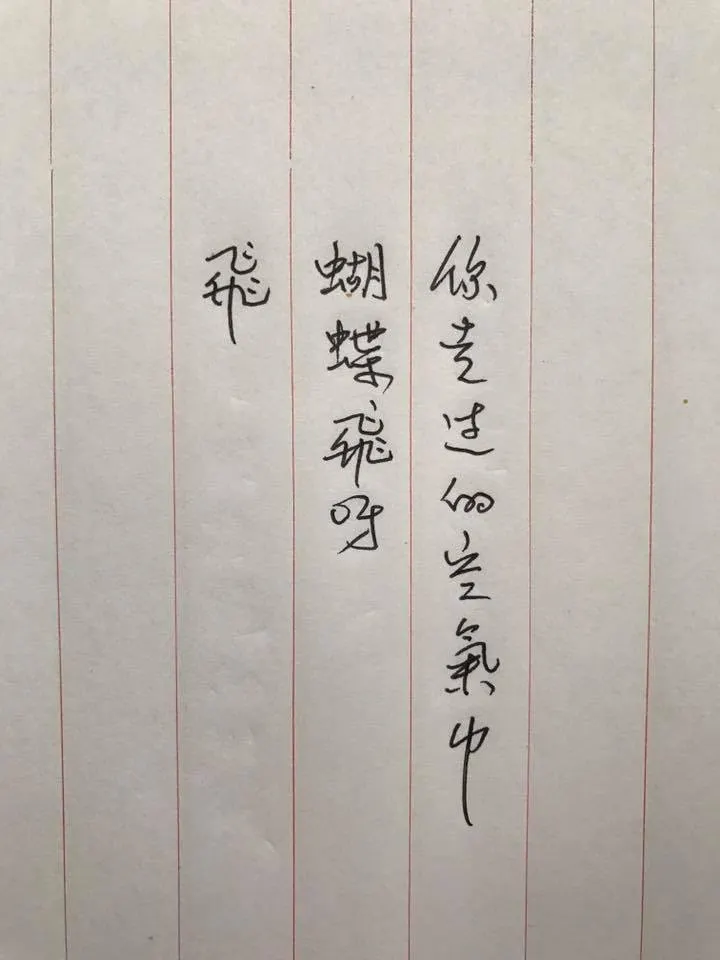 你走过的空氣中
蝴蝶飛呀
飛